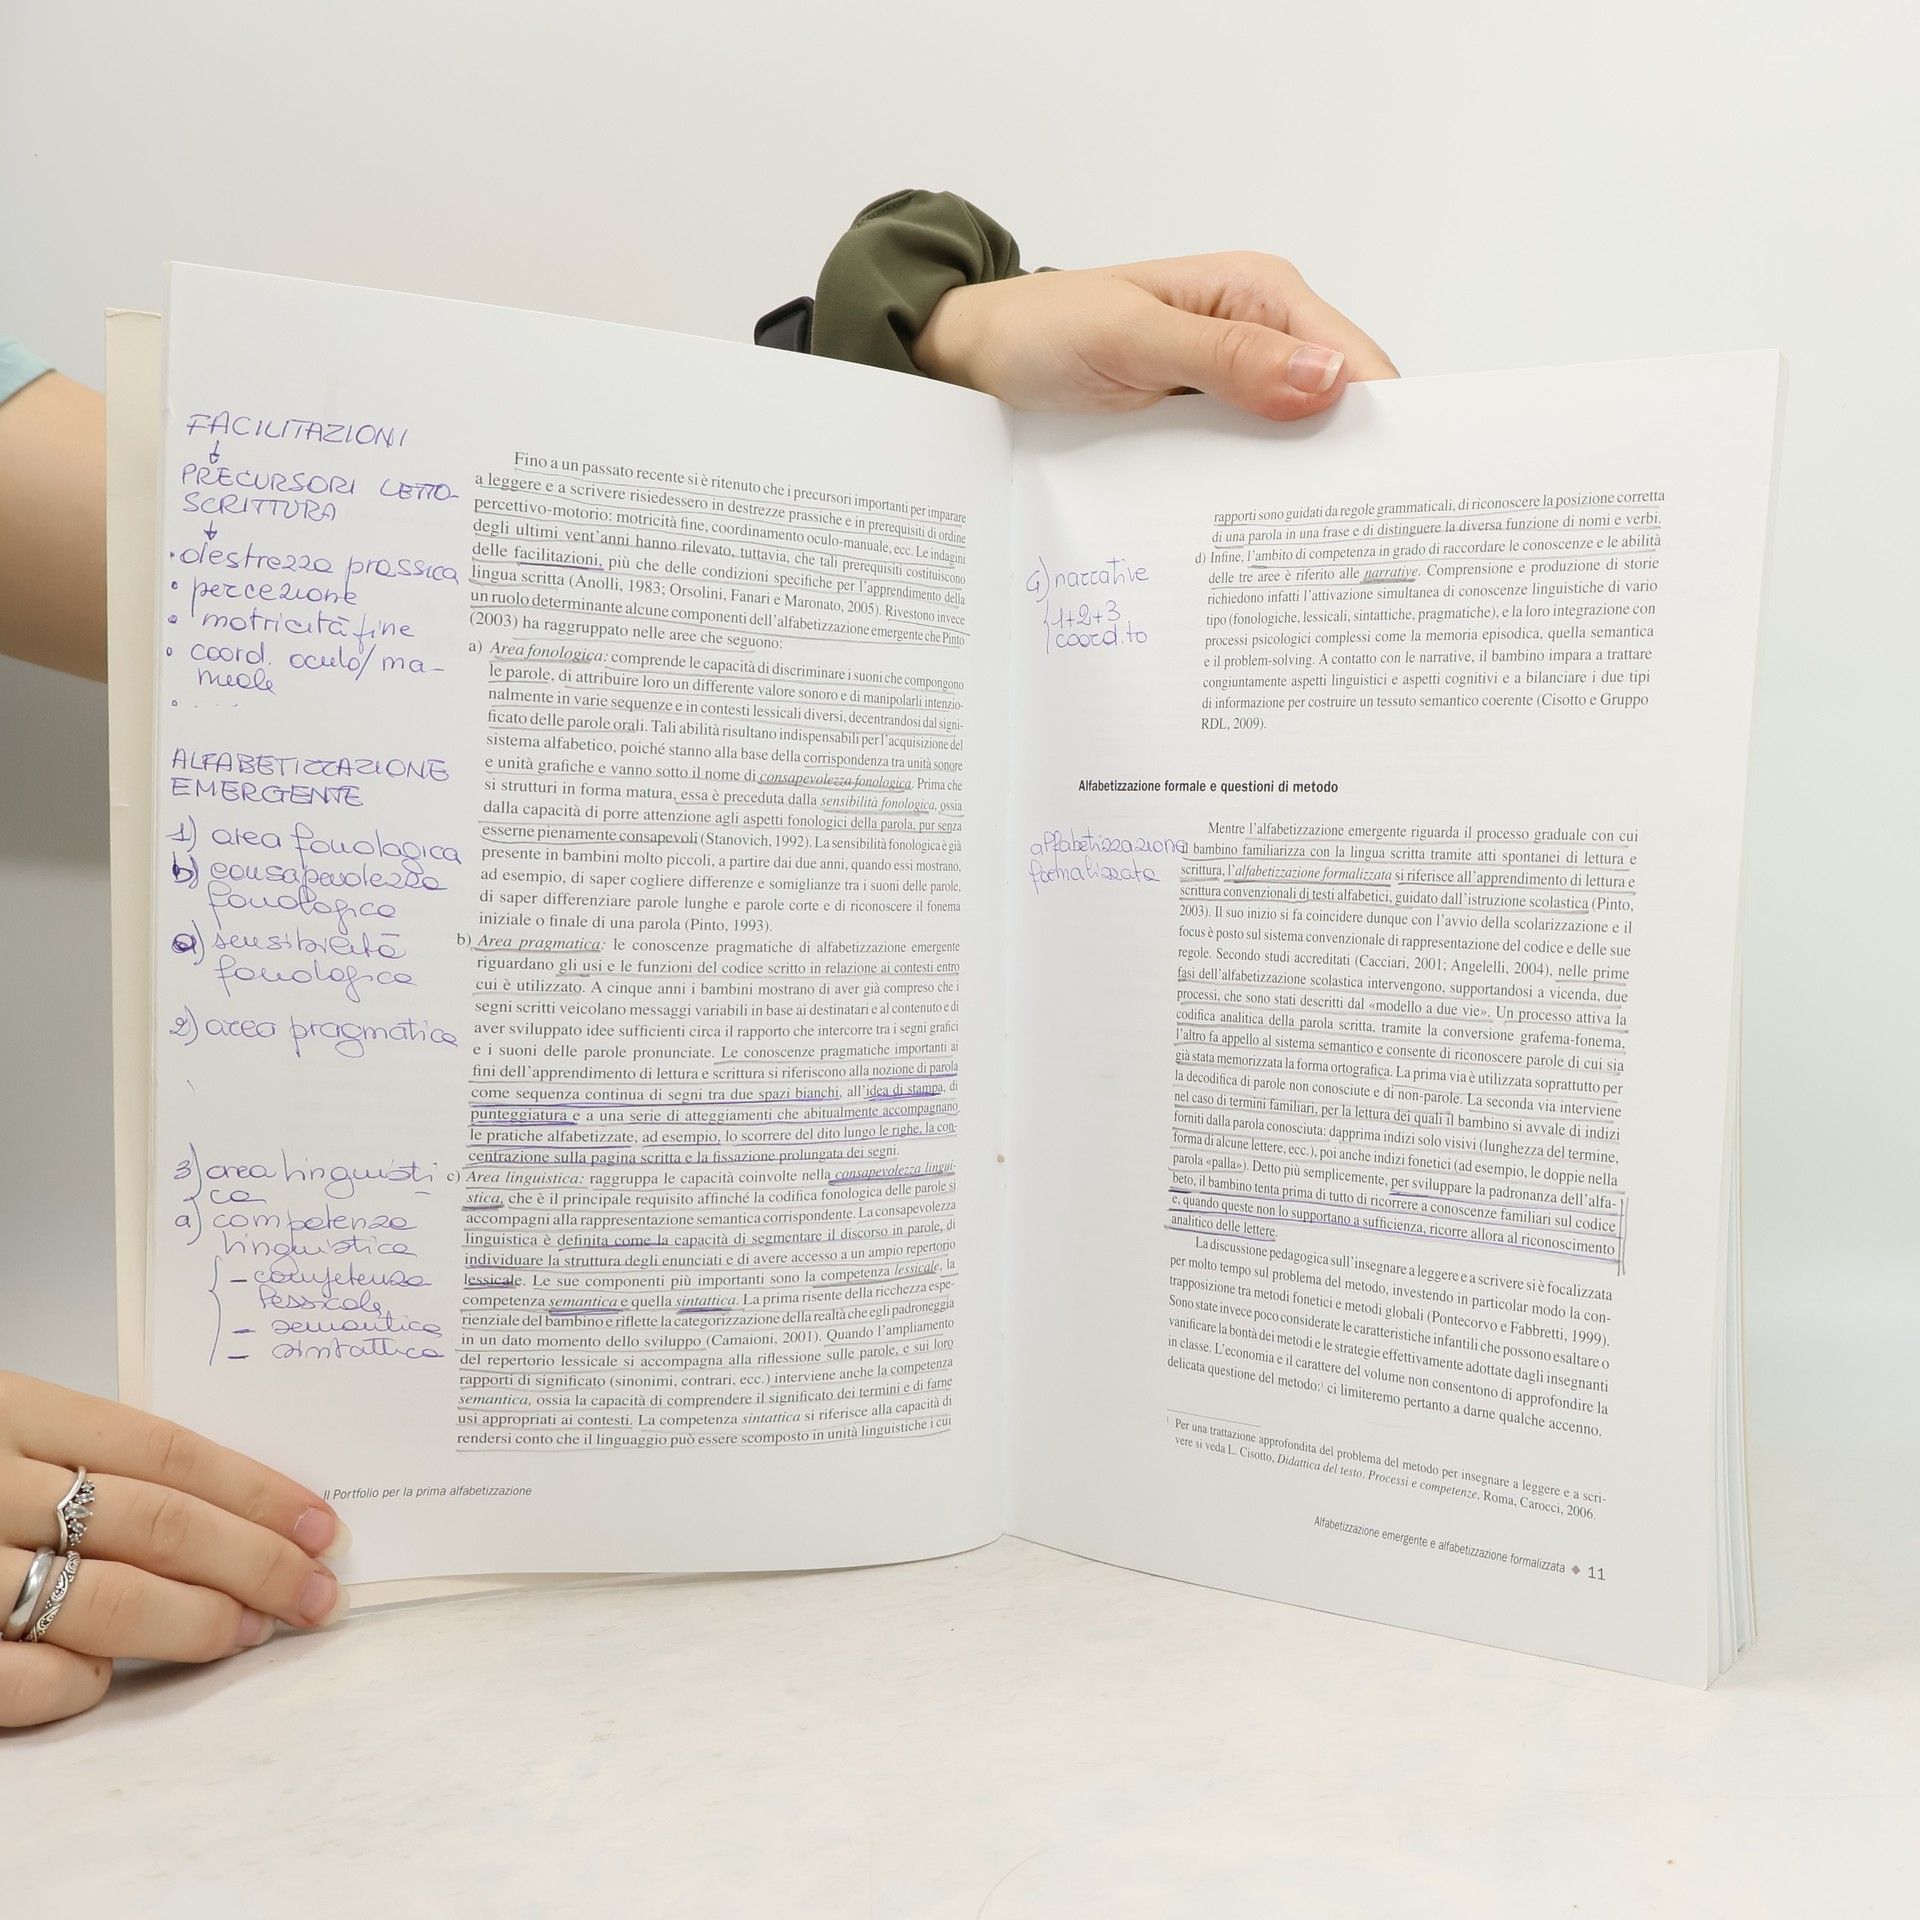 FACILITAZIONI
↓
PRECURSORI LETTO-
SCRITTURA
↓
• destrezza prassica
• percezione
• motricità fine
• coord. oculo/ma-
nuale
• ....
ALFABETIZZAZIONE
EMERGENTE
1) area fonologica
b) consapevolezza
fonologica
a) sensibilità
fonologica
2) area pragmatica
3) area linguisti
ca
a) competenza
linguistica
– competenza
lessicale
– semantica
– sintattica
Fino a un passato recente si è ritenuto che i precursori importanti per imparare
a leggere e a scrivere risiedessero in destrezze prassiche e in prerequisiti di ordine
percettivo-motorio: motricità fine, coordinamento oculo-manuale, ecc. Le indagini
degli ultimi vent'anni hanno rilevato, tuttavia, che tali prerequisiti costituiscono
delle facilitazioni, più che delle condizioni specifiche per l'apprendimento della
lingua scritta (Anolli, 1983; Orsolini, Fanari e Maronato, 2005). Rivestono invece
un ruolo determinante alcune componenti dell'alfabetizzazione emergente che Pinto
(2003) ha raggruppato nelle aree che seguono:
a) Area fonologica: comprende le capacità di discriminare i suoni che compongono
le parole, di attribuire loro un differente valore sonoro e di manipolarli intenzio-
nalmente in varie sequenze e in contesti lessicali diversi, decentrandosi dal signi-
ficato delle parole orali. Tali abilità risultano indispensabili per l'acquisizione del
sistema alfabetico, poiché stanno alla base della corrispondenza tra unità sonore
e unità grafiche e vanno sotto il nome di consapevolezza fonologica. Prima che
si strutturi in forma matura, essa è preceduta dalla sensibilità fonologica, ossia
dalla capacità di porre attenzione agli aspetti fonologici della parola, pur senza
esserne pienamente consapevoli (Stanovich, 1992). La sensibilità fonologica è già
presente in bambini molto piccoli, a partire dai due anni, quando essi mostrano,
ad esempio, di saper cogliere differenze e somiglianze tra i suoni delle parole,
di saper differenziare parole lunghe e parole corte e di riconoscere il fonema
iniziale o finale di una parola (Pinto, 1993).
b) Area pragmatica: le conoscenze pragmatiche di alfabetizzazione emergente
riguardano gli usi e le funzioni del codice scritto in relazione ai contesti entro
cui è utilizzato. A cinque anni i bambini mostrano di aver già compreso che i
segni scritti veicolano messaggi variabili in base ai destinatari e al contenuto e di
aver sviluppato idee sufficienti circa il rapporto che intercorre tra i segni grafici
e i suoni delle parole pronunciate. Le conoscenze pragmatiche importanti ai
fini dell'apprendimento di lettura e scrittura si riferiscono alla nozione di parola
come sequenza continua di segni tra due spazi bianchi, all'idea di stampa, di
punteggiatura e a una serie di atteggiamenti che abitualmente accompagnano
le pratiche alfabetizzate, ad esempio, lo scorrere del dito lungo le righe, la con-
centrazione sulla pagina scritta e la fissazione prolungata dei segni.
c) Area linguistica: raggruppa le capacità coinvolte nella consapevolezza lingui-
stica, che è il principale requisito affinché la codifica fonologica delle parole si
accompagni alla rappresentazione semantica corrispondente. La consapevolezza
linguistica è definita come la capacità di segmentare il discorso in parole, di
individuare la struttura degli enunciati e di avere accesso a un ampio repertorio
lessicale. Le sue componenti più importanti sono la competenza lessicale, la
competenza semantica e quella sintattica. La prima risente della ricchezza espe-
rienziale del bambino e riflette la categorizzazione della realtà che egli padroneggia
in un dato momento dello sviluppo (Camaioni, 2001). Quando l'ampliamento
del repertorio lessicale si accompagna alla riflessione sulle parole, e sui loro
rapporti di significato (sinonimi, contrari, ecc.) interviene anche la competenza
semantica, ossia la capacità di comprendere il significato dei termini e di farne
usi appropriati ai contesti. La competenza sintattica si riferisce alla capacità di
rendersi conto che il linguaggio può essere scomposto in unità linguistiche i cui
Il Portfolio per la prima alfabetizzazione
rapporti sono guidati da regole grammaticali, di riconoscere la posizione corretta
di una parola in una frase e di distinguere la diversa funzione di nomi e verbi.
d) Infine, l'ambito di competenza in grado di raccordare le conoscenze e le abilità
delle tre aree è riferito alle narrative. Comprensione e produzione di storie
richiedono infatti l'attivazione simultanea di conoscenze linguistiche di vario
tipo (fonologiche, lessicali, sintattiche, pragmatiche), e la loro integrazione con
processi psicologici complessi come la memoria episodica, quella semantica
e il problem-solving. A contatto con le narrative, il bambino impara a trattare
congiuntamente aspetti linguistici e aspetti cognitivi e a bilanciare i due tipi
di informazione per costruire un tessuto semantico coerente (Cisotto e Gruppo
RDL, 2009).
4) narrative
1+2+3
coord.to
Alfabetizzazione formale e questioni di metodo
alfabetizzazione
formalizzata
Mentre l'alfabetizzazione emergente riguarda il processo graduale con cui
il bambino familiarizza con la lingua scritta tramite atti spontanei di lettura e
scrittura, l'alfabetizzazione formalizzata si riferisce all'apprendimento di lettura e
scrittura convenzionali di testi alfabetici, guidato dall'istruzione scolastica (Pinto,
2003). Il suo inizio si fa coincidere dunque con l'avvio della scolarizzazione e il
focus è posto sul sistema convenzionale di rappresentazione del codice e delle sue
regole. Secondo studi accreditati (Cacciari, 2001; Angelelli, 2004), nelle prime
fasi dell'alfabetizzazione scolastica intervengono, supportandosi a vicenda, due
processi, che sono stati descritti dal «modello a due vie». Un processo attiva la
codifica analitica della parola scritta, tramite la conversione grafema-fonema,
l'altro fa appello al sistema semantico e consente di riconoscere parole di cui sia
già stata memorizzata la forma ortografica. La prima via è utilizzata soprattutto per
la decodifica di parole non conosciute e di non-parole. La seconda via interviene
nel caso di termini familiari, per la lettura dei quali il bambino si avvale di indizi
forniti dalla parola conosciuta: dapprima indizi solo visivi (lunghezza del termine,
forma di alcune lettere, ecc.), poi anche indizi fonetici (ad esempio, le doppie nella
parola «palla»). Detto più semplicemente, per sviluppare la padronanza dell'alfa-
beto, il bambino tenta prima di tutto di ricorrere a conoscenze familiari sul codice
e, quando queste non lo supportano a sufficienza, ricorre allora al riconoscimento
analitico delle lettere.
La discussione pedagogica sull'insegnare a leggere e a scrivere si è focalizzata
per molto tempo sul problema del metodo, investendo in particolar modo la con-
trapposizione tra metodi fonetici e metodi globali (Pontecorvo e Fabbretti, 1999).
Sono state invece poco considerate le caratteristiche infantili che possono esaltare o
vanificare la bontà dei metodi e le strategie effettivamente adottate dagli insegnanti
in classe. L'economia e il carattere del volume non consentono di approfondire la
delicata questione del metodo:¹ ci limiteremo pertanto a darne qualche accenno.
¹ Per una trattazione approfondita del problema del metodo per insegnare a leggere e a scri-
vere si veda L. Cisotto, Didattica del testo. Processi e competenze, Roma, Carocci, 2006.
Alfabetizzazione emergente e alfabetizzazione formalizzata ◆ 11